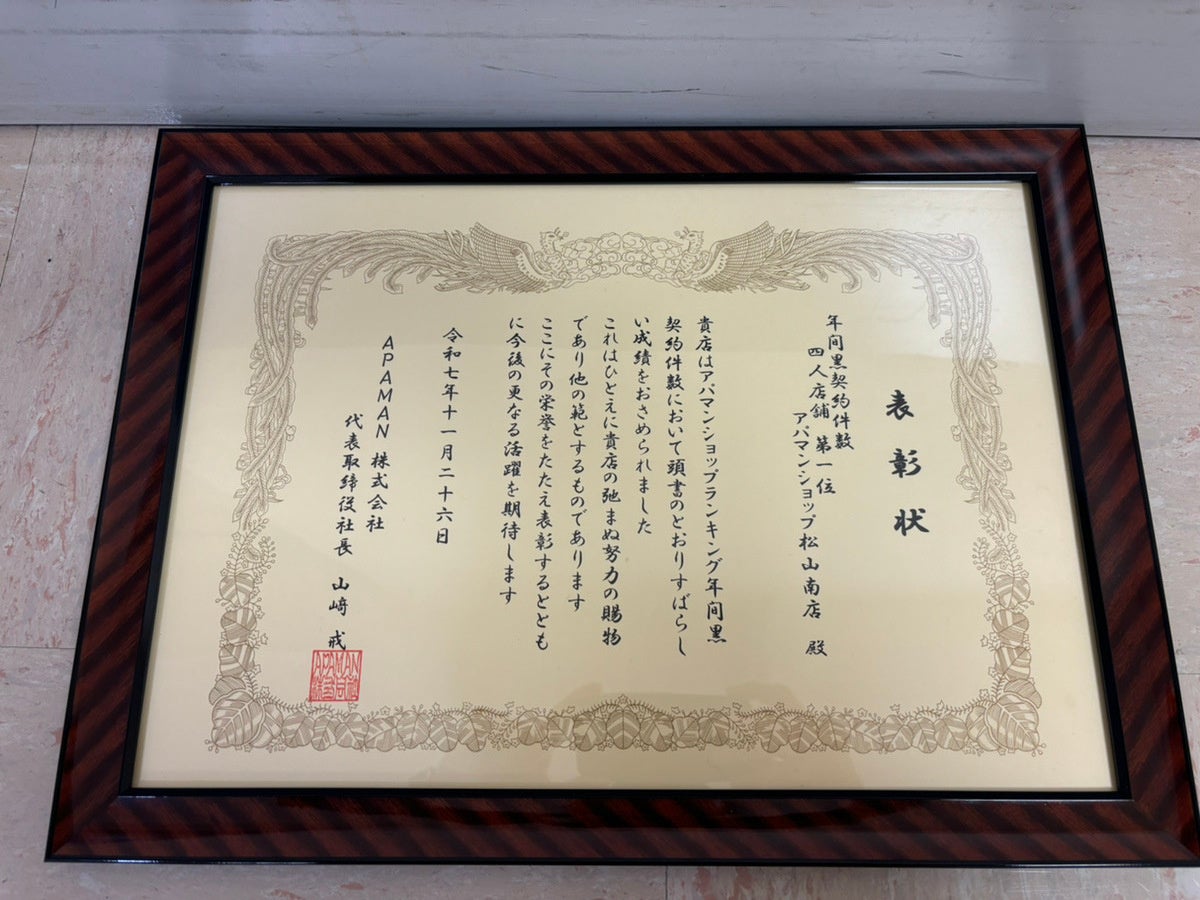 表彰状
年間黒契約件数
四人店舗 第一位
アパマンショップ松山南店 殿
貴店はアパマンショップランキング年間黒
契約件数において頭書のとおりすばらし
い成績をおさめられました
これはひとえに貴店の弛まぬ努力の賜物
であり他の範とするものであります
ここにその栄誉をたたえ表彰するととも
に今後の更なる活躍を期待します
令和七年十一月二十六日
APAMAN 株式会社
代表取締役社長 山﨑 戒